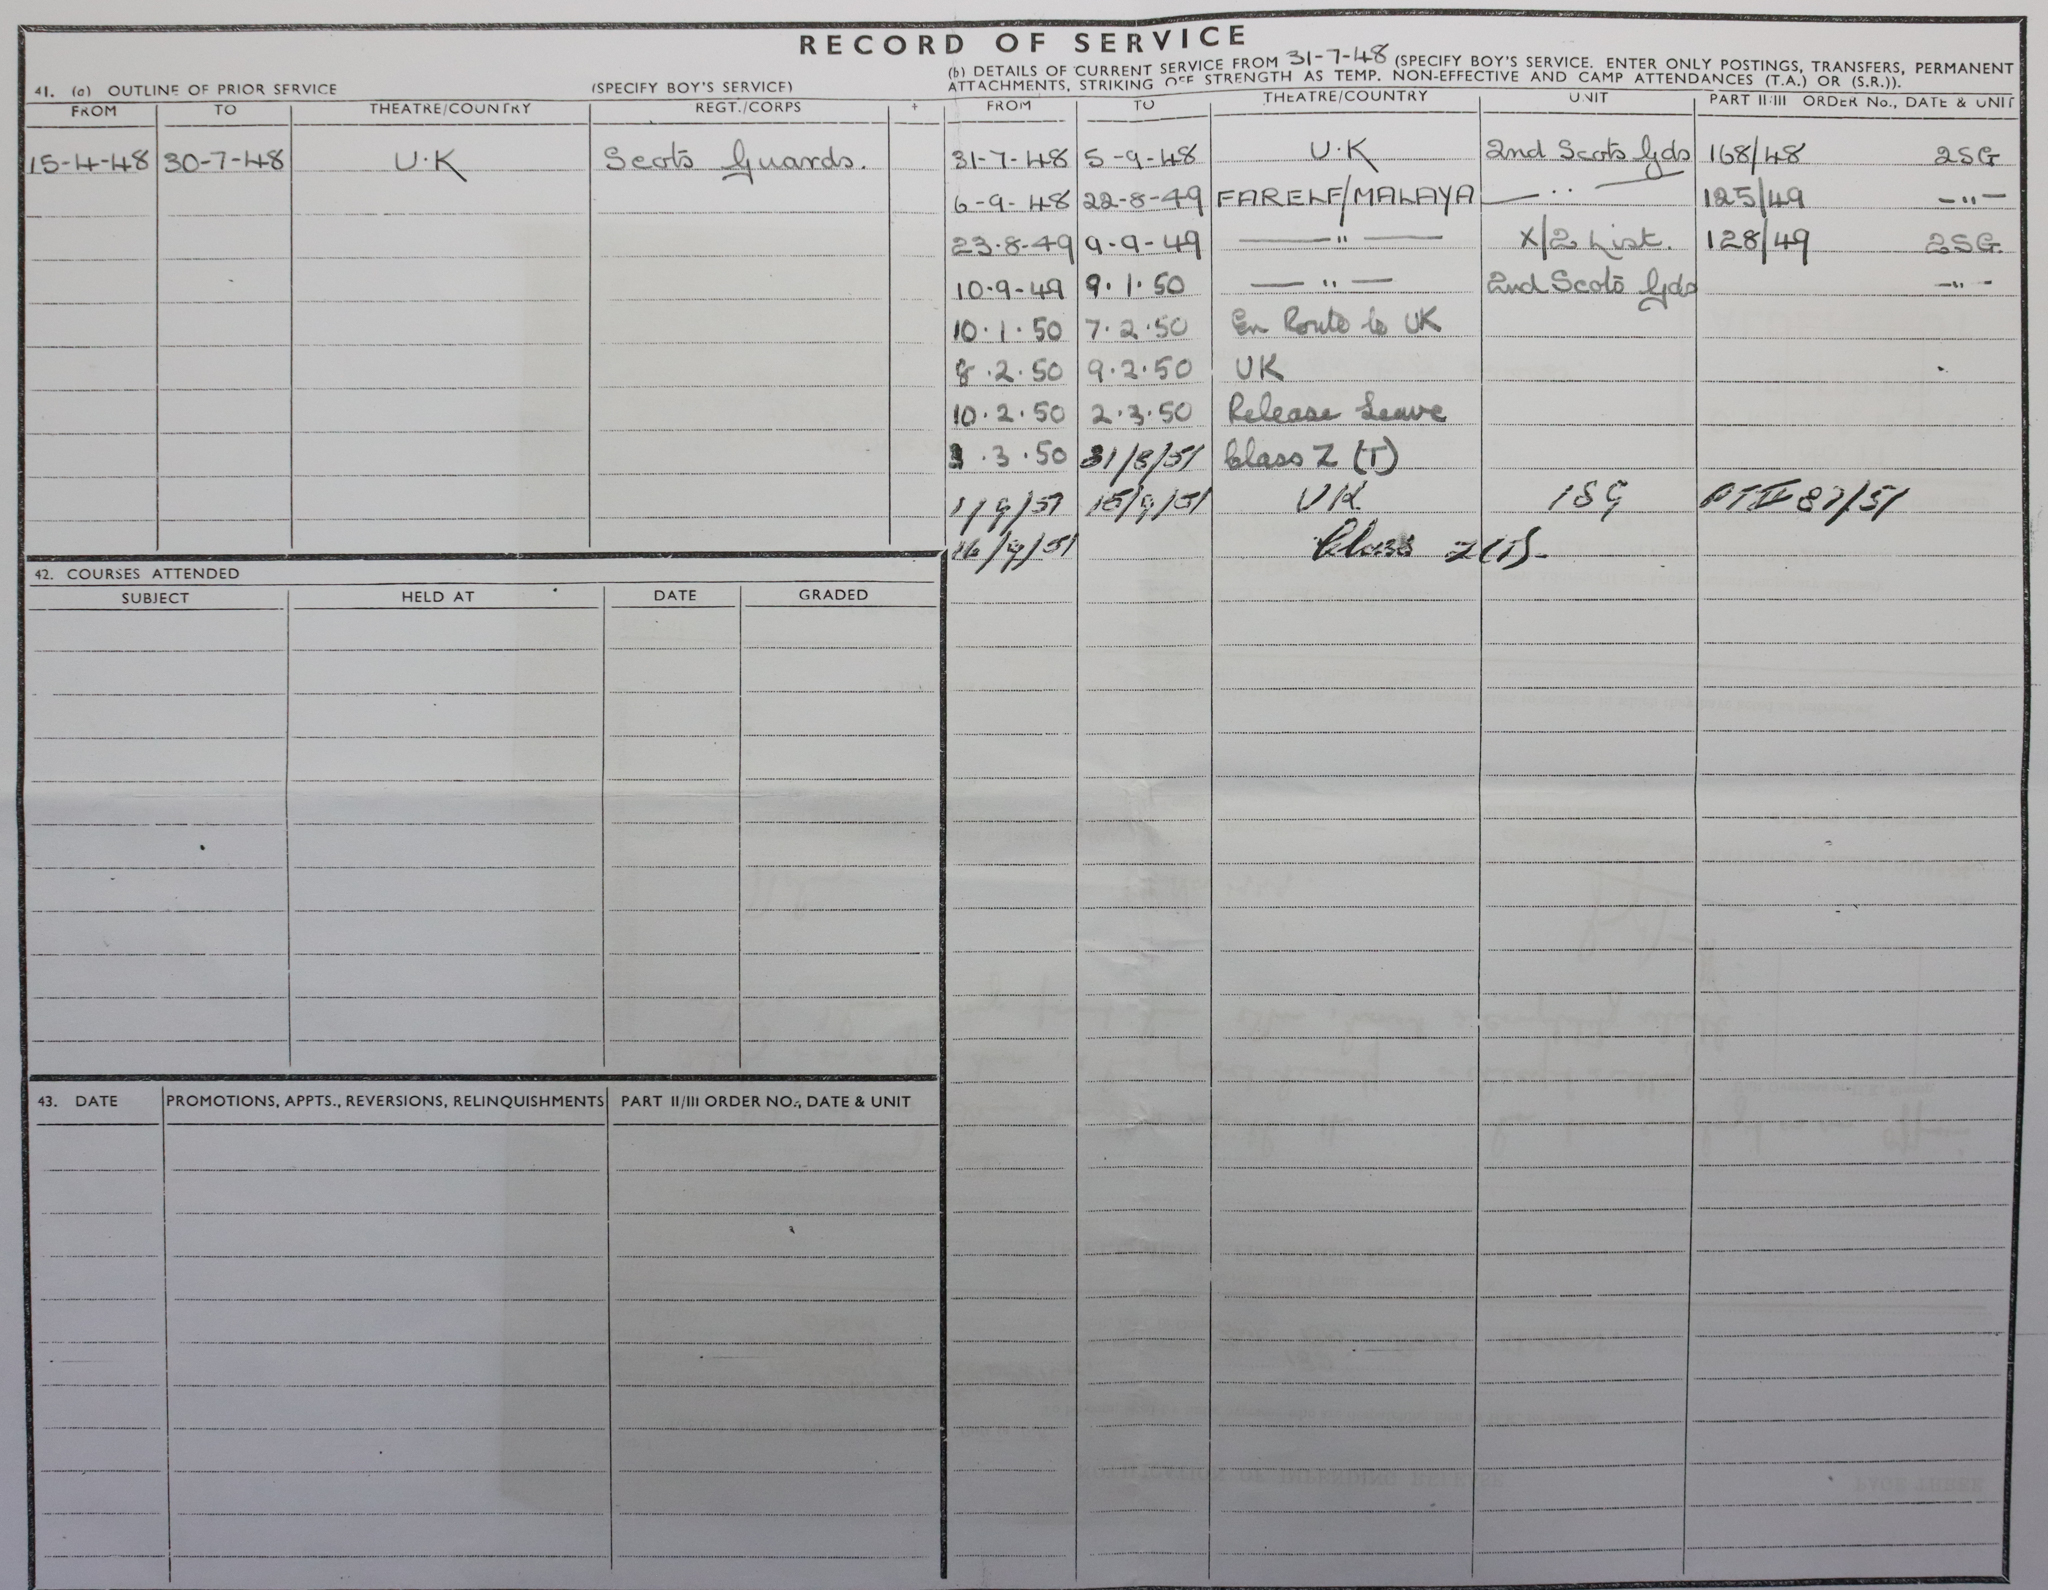 RECORD OF SERVICE
41. (a) OUTLINE OF PRIOR SERVICE (SPECIFY BOY'S SERVICE)
FROM TO THEATRE/COUNTRY REGT./CORPS +
15-4-48 30-7-48 U.K Scots Guards.
(b) DETAILS OF CURRENT SERVICE FROM 31-7-48 (SPECIFY BOY'S SERVICE. ENTER ONLY POSTINGS, TRANSFERS, PERMANENT
ATTACHMENTS, STRIKING OFF STRENGTH AS TEMP. NON-EFFECTIVE AND CAMP ATTENDANCES (T.A.) OR (S.R.)).
FROM TO THEATRE/COUNTRY UNIT PART II/III ORDER No., DATE & UNIT
31-7-48 5-9-48 U.K 2nd Scots Gds 168/48 2SG
6-9-48 22-8-49 FARELF/MALAYA — ·· — 125/49 — " —
23.8-49 9-9-49 — " — X/2 List. 128/49 2SG.
10.9-49 9.1.50 — " — 2nd Scots Gds — " —
10.1.50 7.2.50 En Route to UK
8.2.50 9.2.50 UK
10.2.50 2.3.50 Release Leave
3.3.50 31/8/51 Class Z (T)
1/9/51 15/9/51 UK 1SG PT II 87/51
16/9/51 Class Z(T)-
42. COURSES ATTENDED
SUBJECT HELD AT DATE GRADED
43. DATE PROMOTIONS, APPTS., REVERSIONS, RELINQUISHMENTS PART II/III ORDER NO., DATE & UNIT